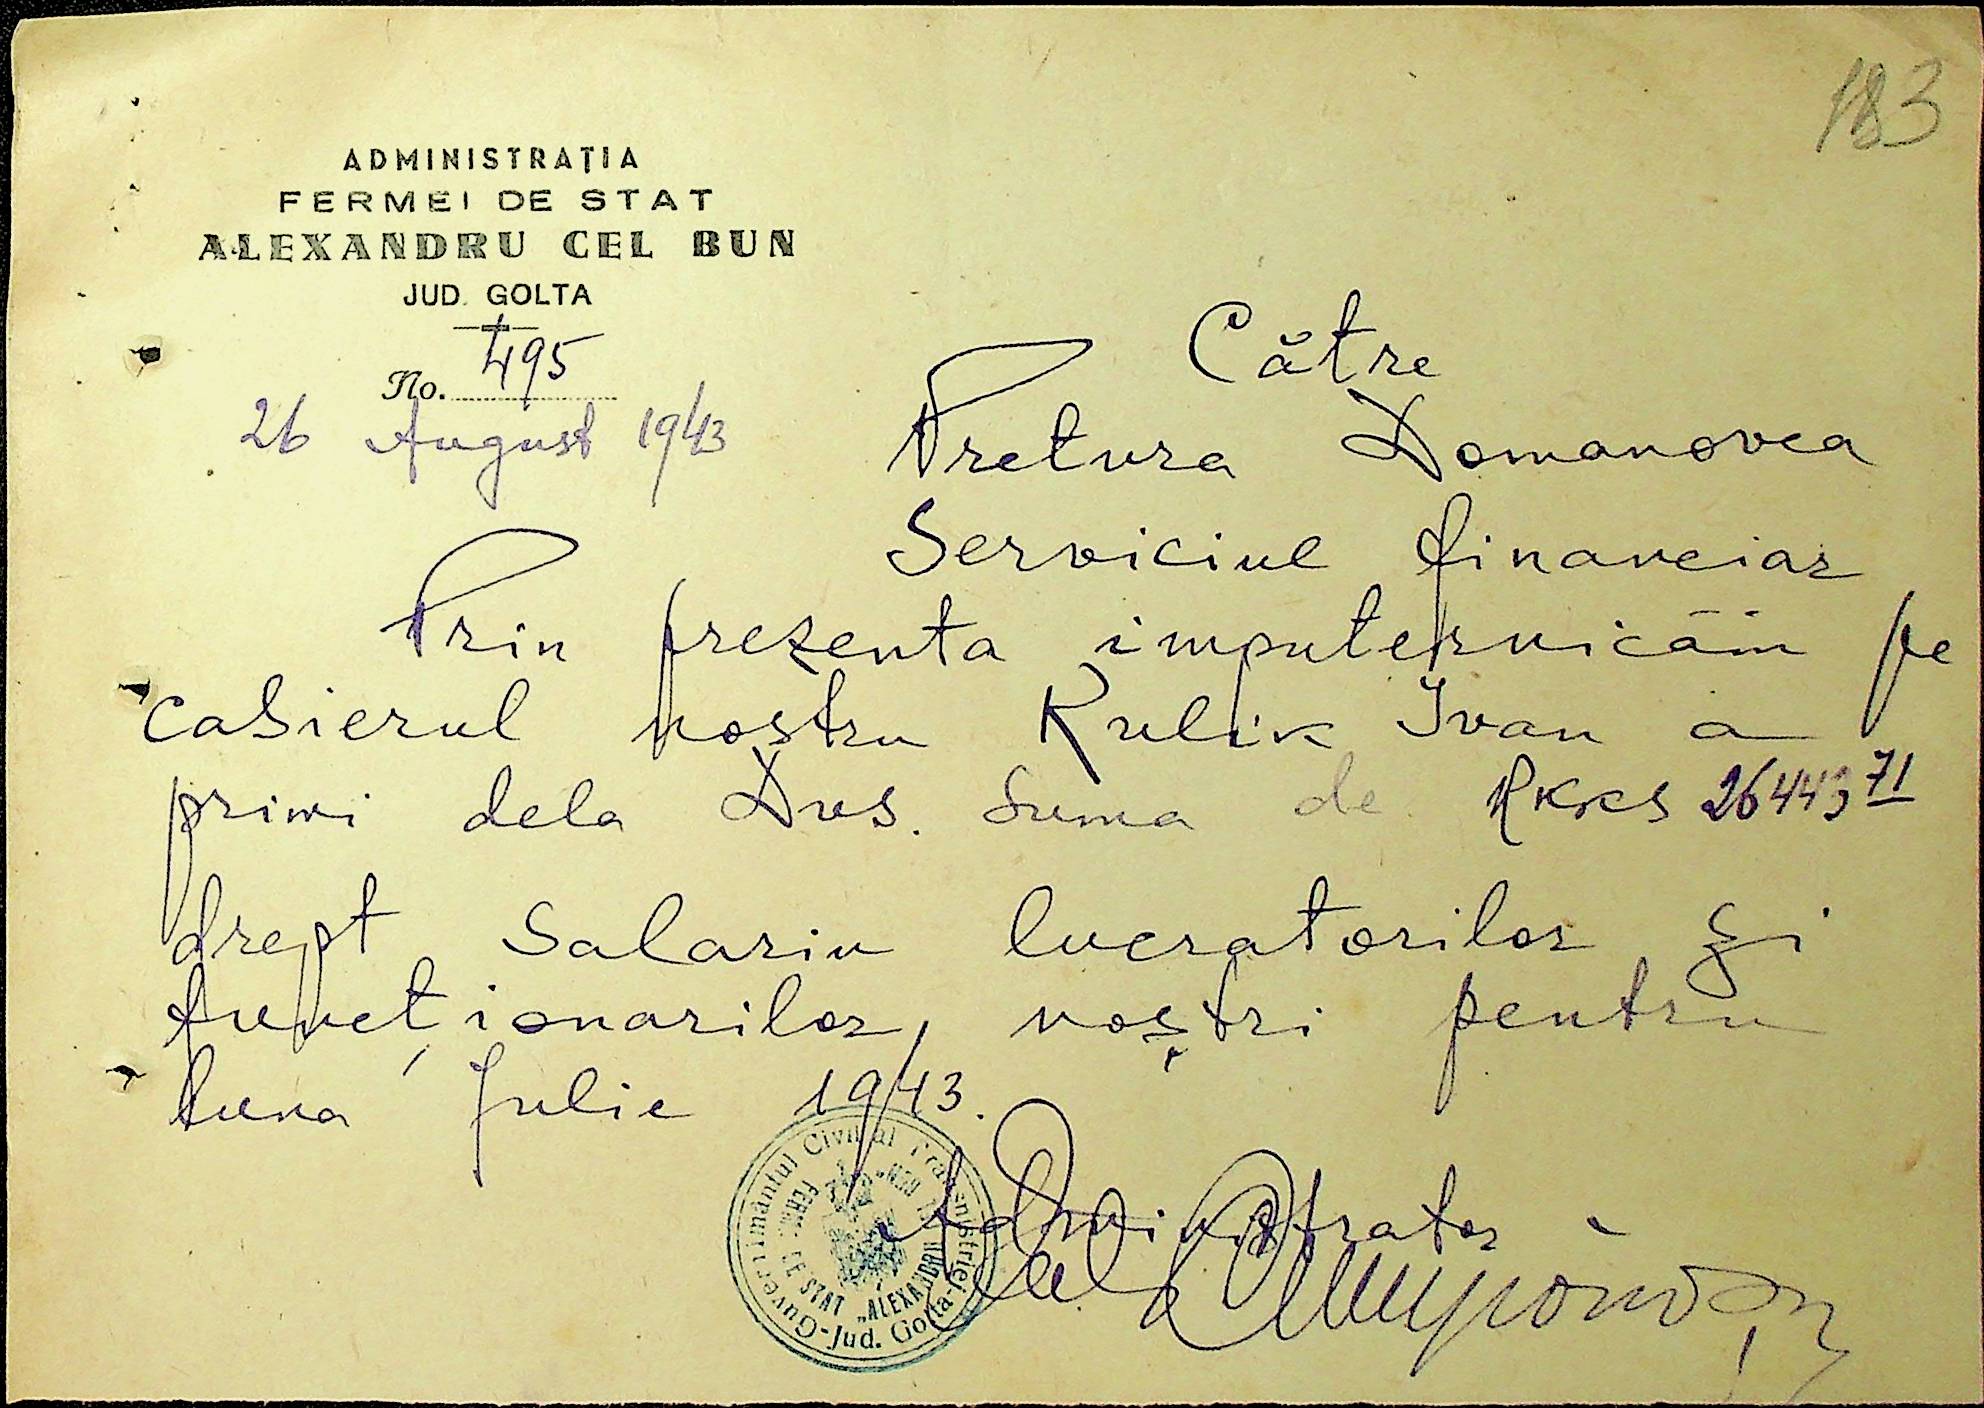 183
ADMINISTRAȚIA
FERMEI DE STAT
ALEXANDRU CEL BUN
JUD. GOLTA
No. 495
26 August 1943
Către
Pretura Domanovca
Serviciul financiar
Prin prezenta imputernicăm pe
casierul nostru Kulik Ivan a
primi dela Dvs. suma de RKKS 26443 71
drept salariu lucratorilor și
funcționarilor noștri pentru
luna Julie 1943.
Administrator
Guvernământul Civil al Transnistriei - Jud. Golta -
FERMA DE STAT „ALEXANDRU CEL BUN"